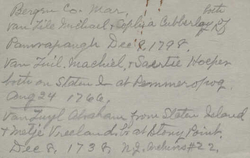 Bergen Co. Mar.
Van Tile Michael & Sophia Cubberley, both of
Pamrapaugh Dec 8, 1798.
Van Tuil. Machiel, & Saertie Hooper
both on Staten I at Bommerspoq
Aug 24 1766,
Van Tuyl Abraham from Staten Island
& Metje Vreeland, b at Stony Point,
Dec 8, 1738, N.J. Archives # 22,